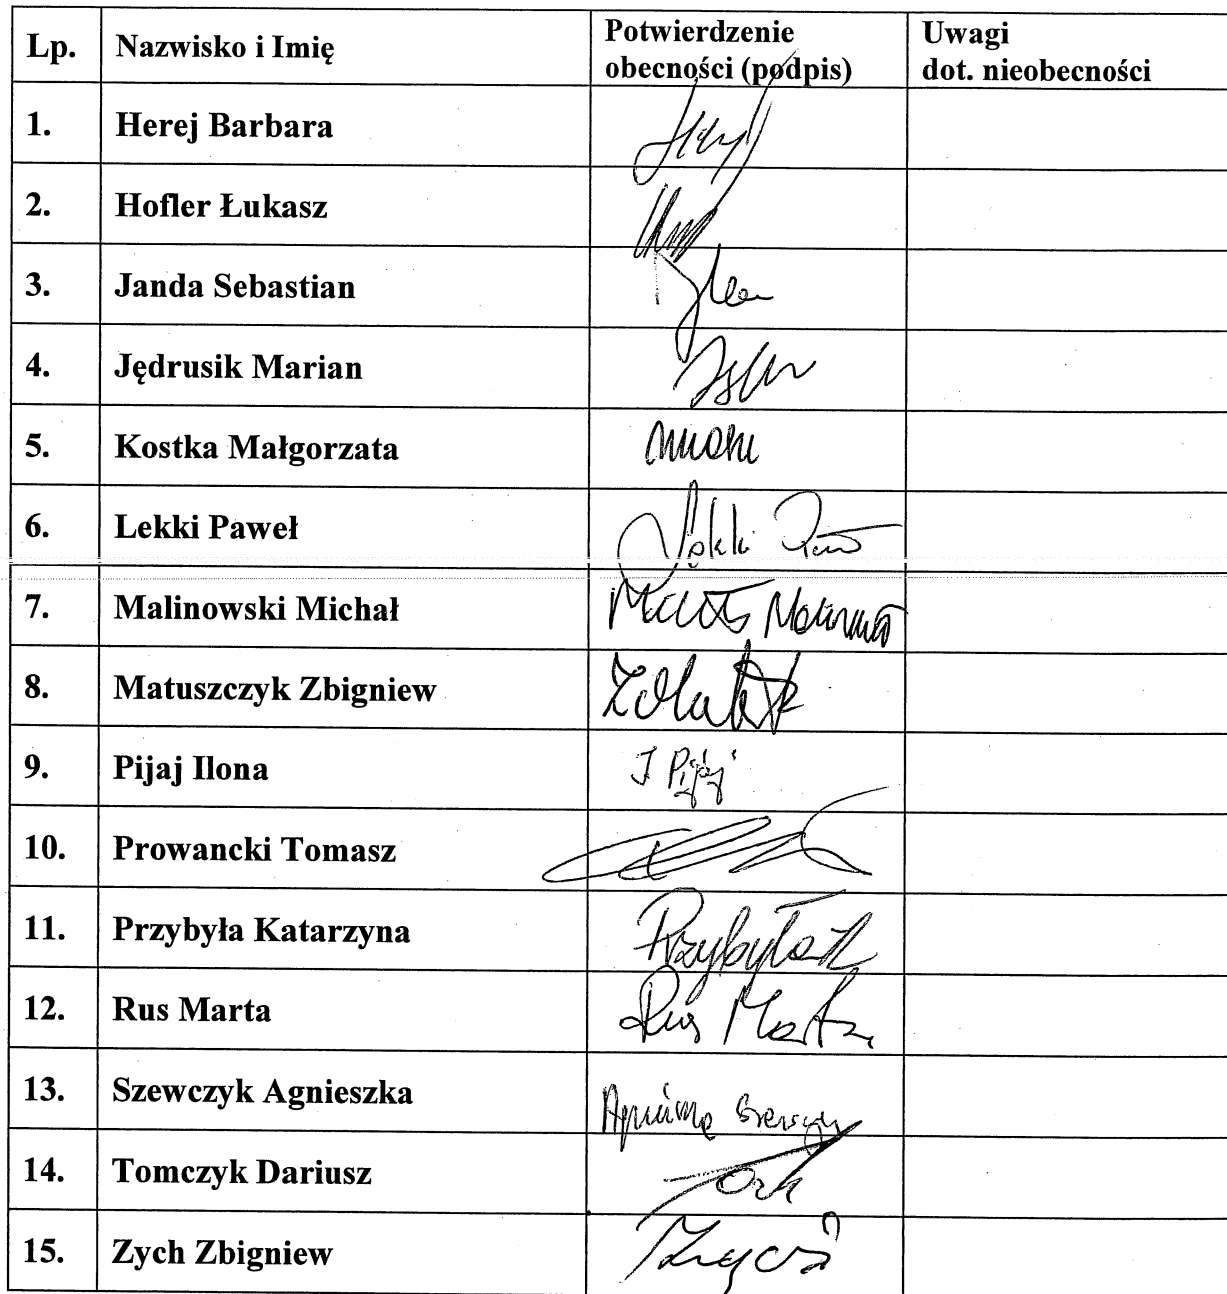 Lp. Nazwisko i Imię Potwierdzenie obecności (podpis) Uwagi dot. nieobecności
1. Herej Barbara
2. Hofler Łukasz
3. Janda Sebastian
4. Jędrusik Marian
5. Kostka Małgorzata
6. Lekki Paweł
7. Malinowski Michał
8. Matuszczyk Zbigniew
9. Pijaj Ilona I Pijaj
10. Prowancki Tomasz
11. Przybyła Katarzyna Przybyła K
12. Rus Marta Rus Marta
13. Szewczyk Agnieszka
14. Tomczyk Dariusz
15. Zych Zbigniew